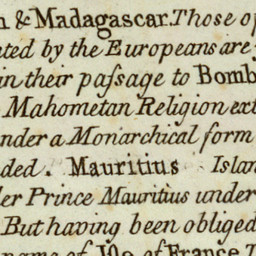 & Madagascar. Those
by the Europeans are
in their paſsage to Bomb
Mahometan Religion ext
under a Monarchical form
ded. Mauritius Islan
Prince Mauritius under
But having been obliged
name of I. of France